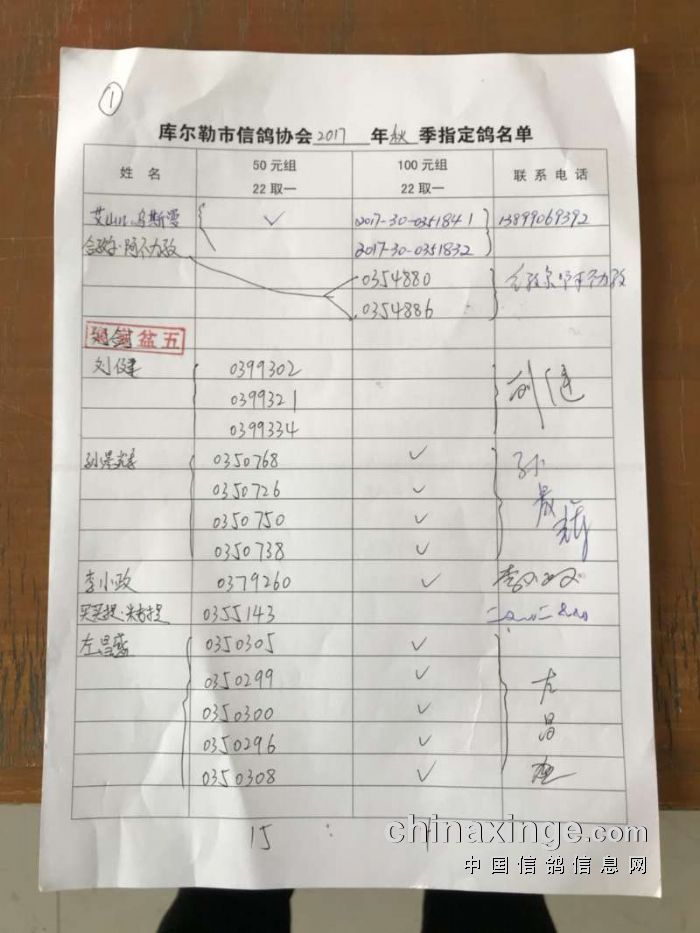 1
库尔勒市信鸽协会2017年秋季指定鸽名单
姓名 50元组 22取一 100元组 22取一 联系电话
乌斯曼 ✓ 2017-30-0351841 13899069392
2017-30-0351832
0354880
0354886
盆五
刘健 0399302 刘健
0399321
0399334
孙 0350768 ✓ 孙
0350726 ✓
0350750 ✓
0350738 ✓
李小政 0379260 ✓ 李小政
买买提· 0355143
左昌 0350305 ✓ 左昌
0350299 ✓
0350300 ✓
0350296 ✓
0350308 ✓
15 :
chinaxinge.com
中国信鸽信息网